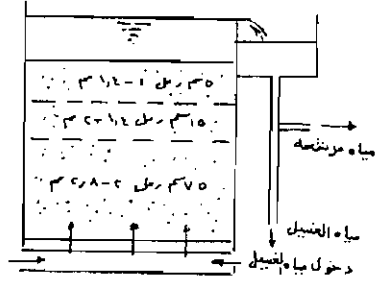 ٥ سم رمل ١ - ١,٤ مم
١٥ سم رمل ١,٤ - ٢ مم
٧٥ سم رمل ٢ - ٢,٨ مم
مياه مرشحه
مياه الغسيل
دخول مياه الغسيل